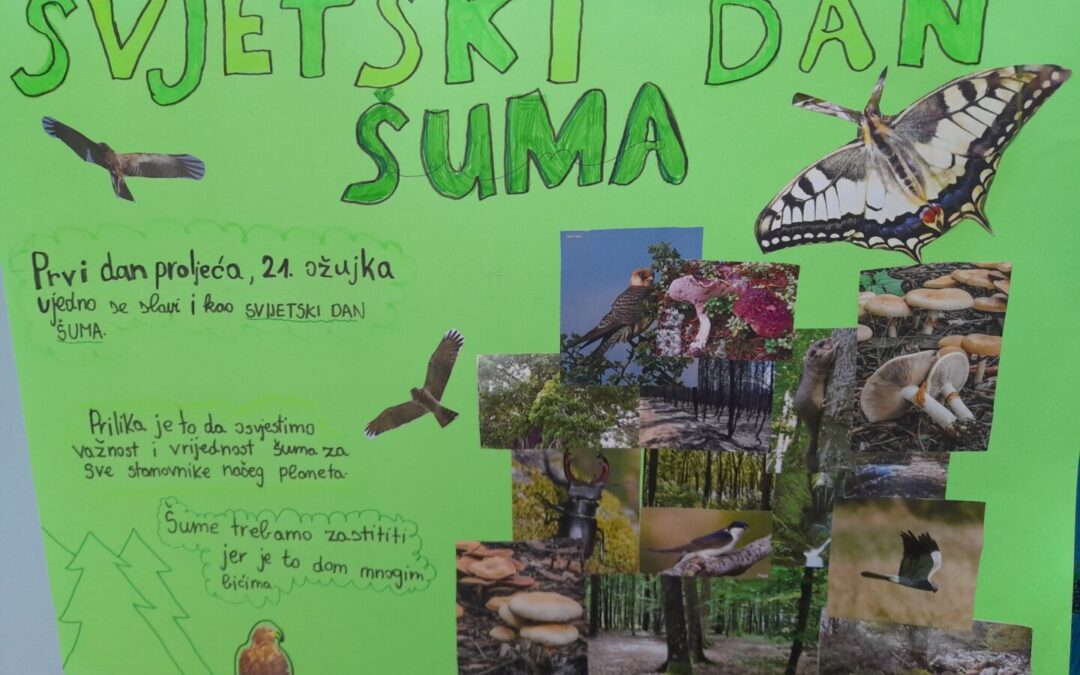 SVJETSKI DAN
ŠUMA
Prvi dan proljeća, 21. ožujka
ujedno se slavi i kao SVIJETSKI DAN
ŠUMA.
Prilika je to da osvjestimo
važnost i vrijednost šuma za
sve stanovnike našeg planeta.
Šume trebamo zastititi
jer je to dom mnogim
bićima.